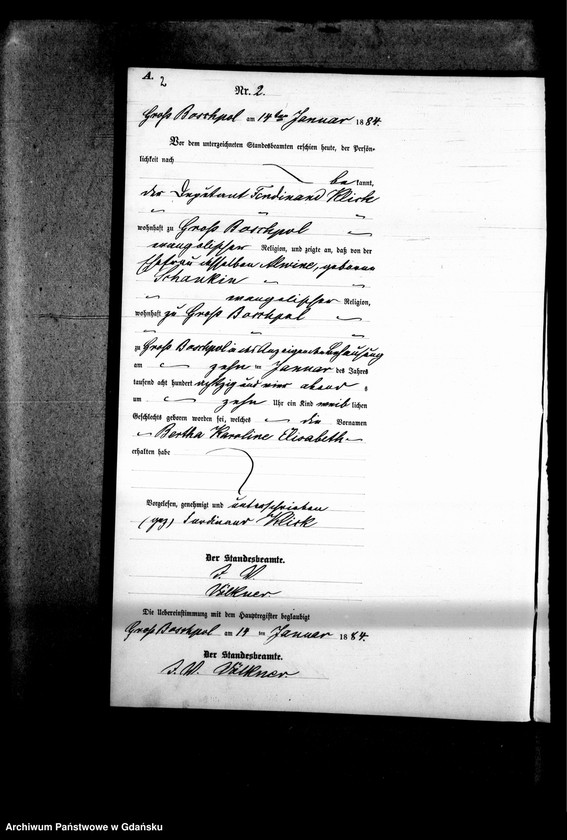 A.
2
Nr. 2.
Groß Boschpol am 14ten Januar 1884.
Vor dem unterzeichneten Standesbeamten erschien heute, der Persön-
lichkeit nach
bekannt,
der Deputant Ferdinand Klick
wohnhaft zu Groß Boschpol
evangelischer Religion, und zeigte an, daß von der
Ehefrau desselben Alwine, geborene
Schankin
evangelischer Religion,
wohnhaft zu Groß Boschpol
zu Groß Boschpol in des Anzeigenden Behausung
am zehn ten Januar des Jahres
tausend acht hundert achtzig und vier abends
um zehn Uhr ein Kind weiblichen
Geschlechts geboren worden sei, welches die Vornamen
Bertha Karoline Elisabeth
erhalten habe
Vorgelesen, genehmigt und unterschrieben
(gez) Ferdinand Klick
Der Standesbeamte.
J. V.
Völkner
Die Uebereinstimmung mit dem Hauptregister beglaubigt
Groß Boschpol am 14 ten Januar 1884.
Der Standesbeamte.
J. V. Völkner
Archiwum Państwowe w Gdańsku